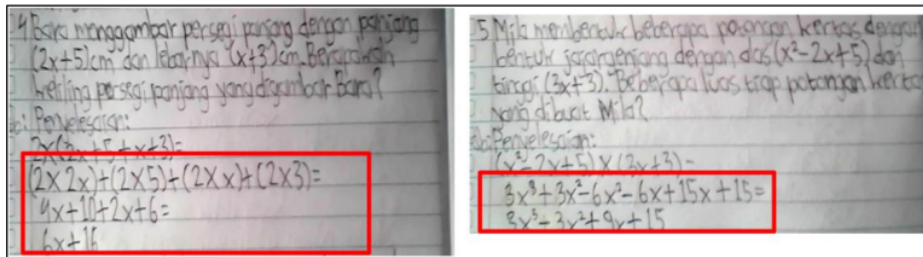 4. Bara menggambar persegi panjang dengan panjang
(2x+5)cm dan lebarnya (x+3)cm. Berapakah
keliling persegi panjang yang digambar Bara?
Penyelesaian:
2x(2x+5+x+3)=
(2x2x)+(2x5)+(2xx)+(2x3)=
4x+10+2x+6=
6x+16
5. Mila membentuk beberapa potongan kertas dengan
bentuk jajargenjang dengan alas (x²-2x+5) dan
tinggi (3x+3). Beberapa luas tiap potongan kertas
yang dibuat Mila?
Penyelesaian:
(x²-2x+5)x(3x+3)=
3x³+3x²-6x²-6x+15x+15=
3x³-3x²+9x+15